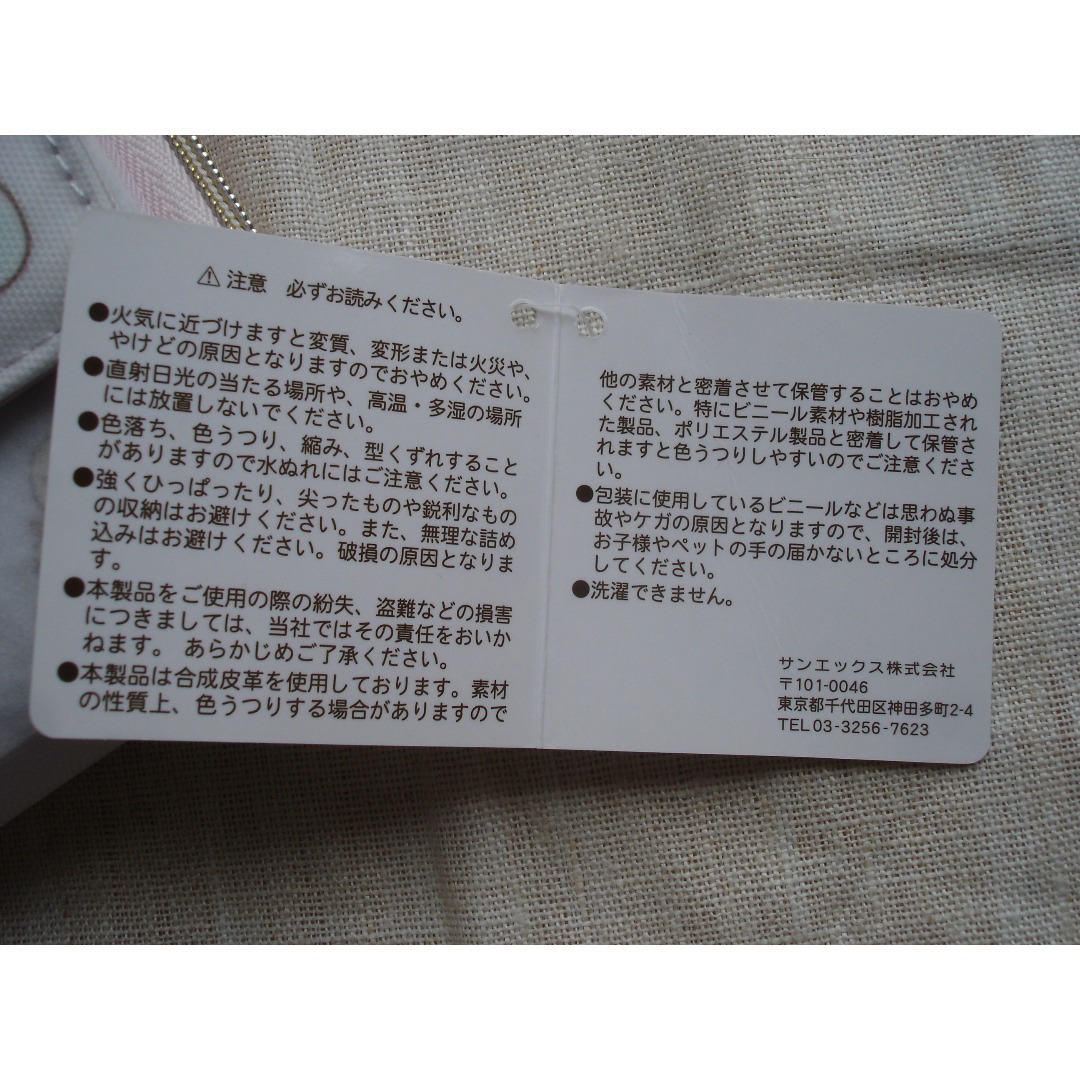 ⚠注意 必ずお読みください。
●火気に近づけますと変質、変形または火災や、
やけどの原因となりますのでおやめください。
●直射日光の当たる場所や、高温・多湿の場所
には放置しないでください。
●色落ち、色うつり、縮み、型くずれすること
がありますので水ぬれにはご注意ください。
●強くひっぱったり、尖ったものや鋭利なもの
の収納はお避けください。また、無理な詰め
込みはお避けください。破損の原因となりま
す。
●本製品をご使用の際の紛失、盗難などの損害
につきましては、当社ではその責任をおいか
ねます。 あらかじめご了承ください。
●本製品は合成皮革を使用しております。素材
の性質上、色うつりする場合がありますので
他の素材と密着させて保管することはおやめ
ください。特にビニール素材や樹脂加工され
た製品、ポリエステル製品と密着して保管さ
れますと色うつりしやすいのでご注意くださ
い。
●包装に使用しているビニールなどは思わぬ事
故やケガの原因となりますので、開封後は、
お子様やペットの手の届かないところに処分
してください。
●洗濯できません。
サンエックス株式会社
〒101-0046
東京都千代田区神田多町2-4
TEL 03-3256-7623